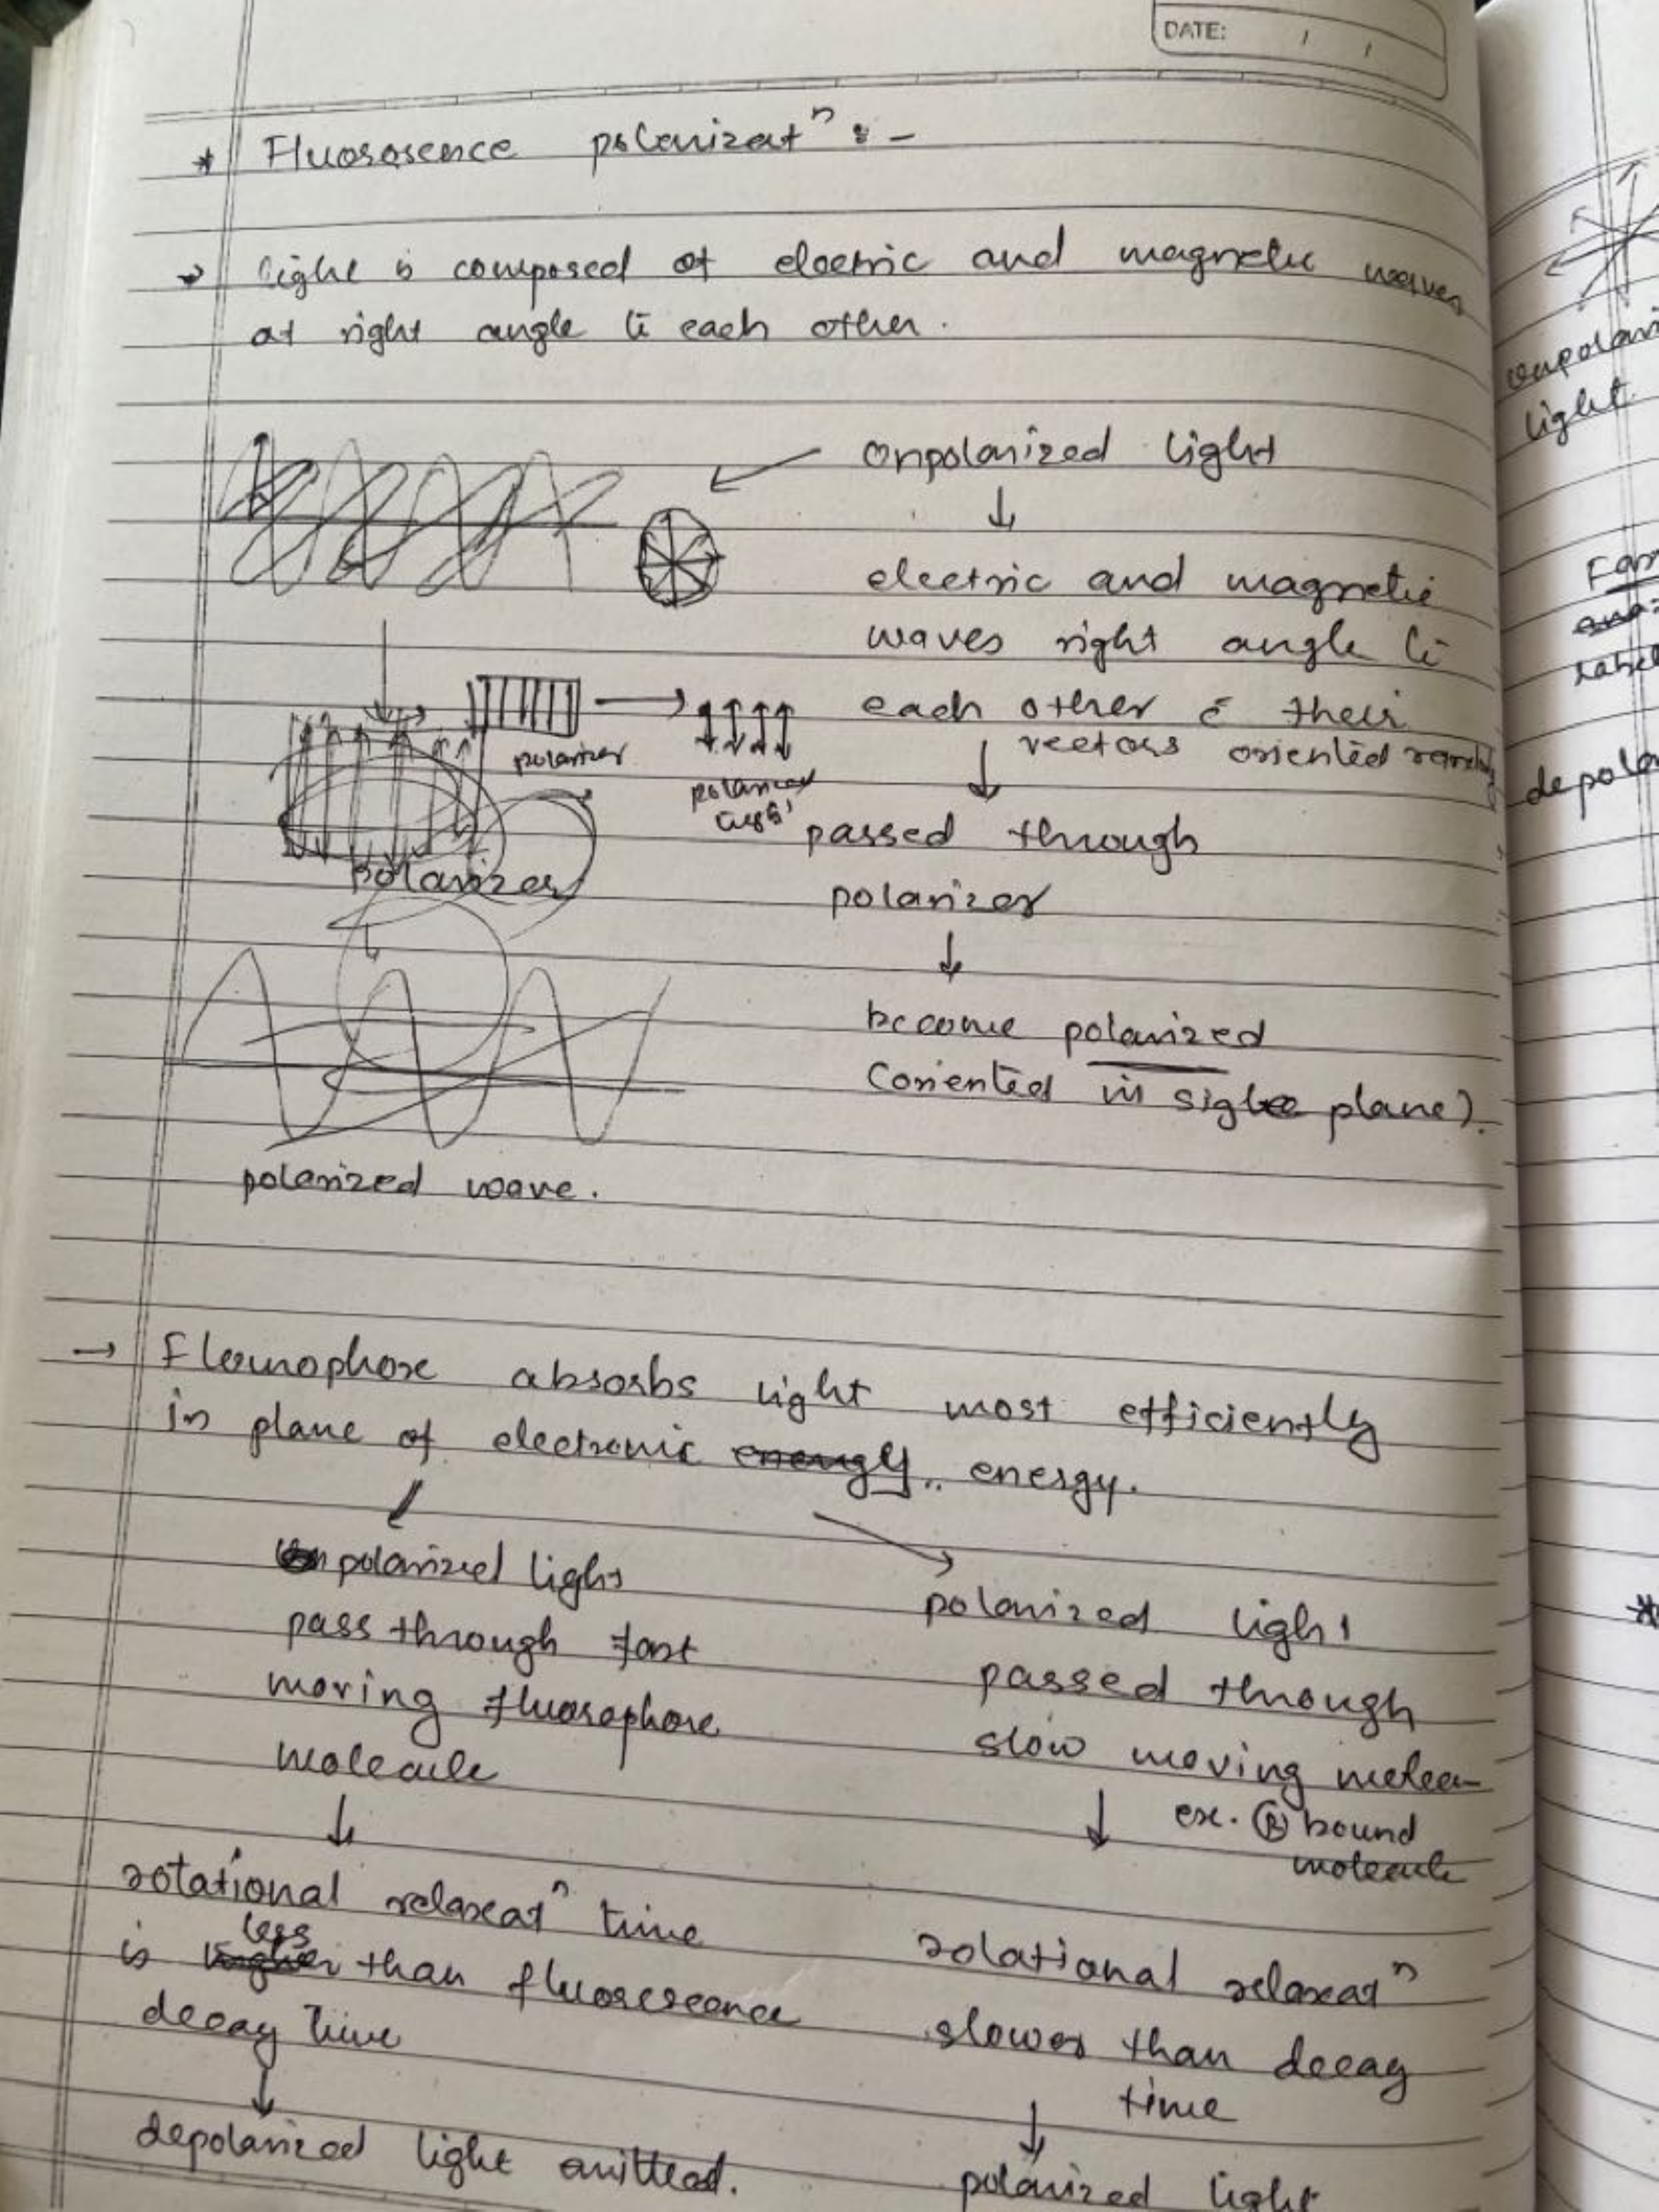 DATE: / /
* Fluorosence polarizatⁿ :-
→ light is composed of electric and magnetic waves
at right angle to each other.
Unpolarized light
↓
electric and magnetic
waves right angle to
each other c̄ their
vectors oriented randomly
polarizer
polarized
light
↓
passed through
polarizer
polarizer
↓
become polarized
(oriented in sigle plane).
polarized wave.
→ Flourophore absorbs light most efficiently
in plane of electronic energy.. energy.
polarized light
pass through fast
moving fluorophore
molecule
↓
rotational relaxatⁿ time
is less than fluorescence
decay time
↓
depolarized light emitted.
polarized light
passed through
slow moving molecu-
↓ ex. Ⓑ bound
molecule
rotational relaxatⁿ
slower than decay
time
↓
polarized light
unpolari
light
Far
label
depola
*